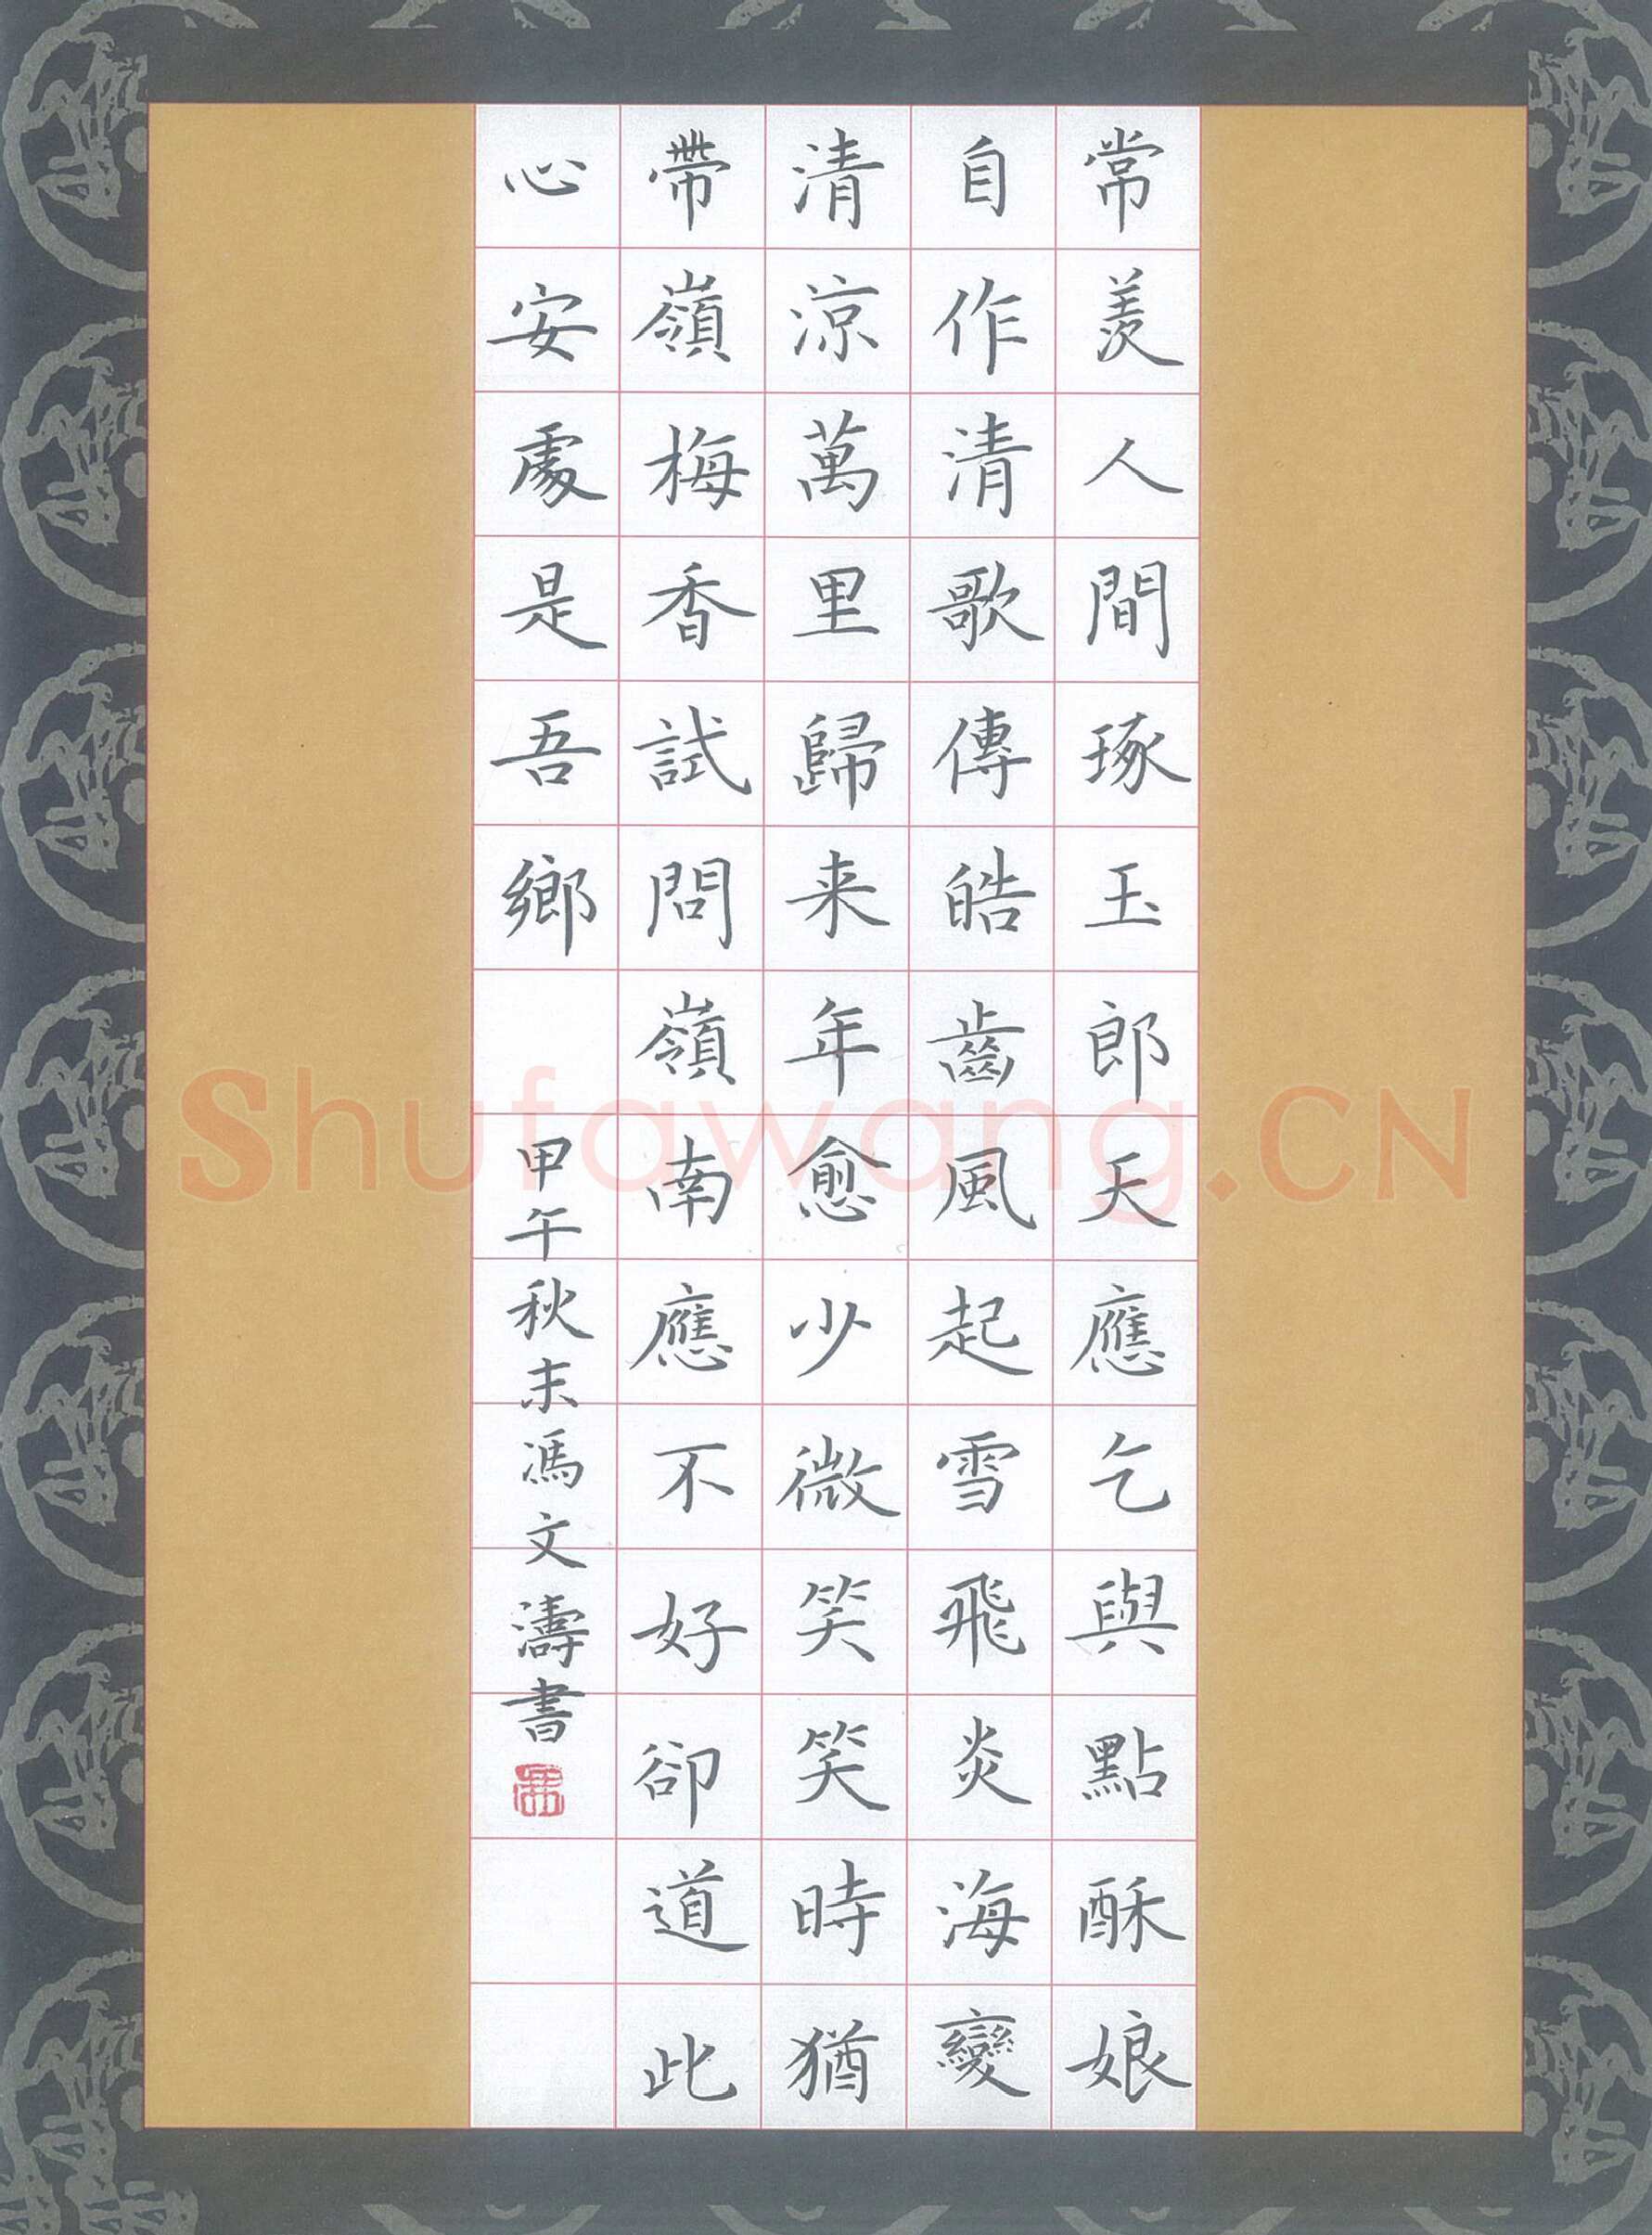 常羨人間琢玉郎天應乞與點酥娘
自作清歌傳皓齒風起雪飛炎海變
清涼萬里歸来年愈少微笑笑時猶
帶嶺梅香試問嶺南應不好卻道此
心安處是吾鄉
甲午秋末馮文濤書
Shufawang.CN